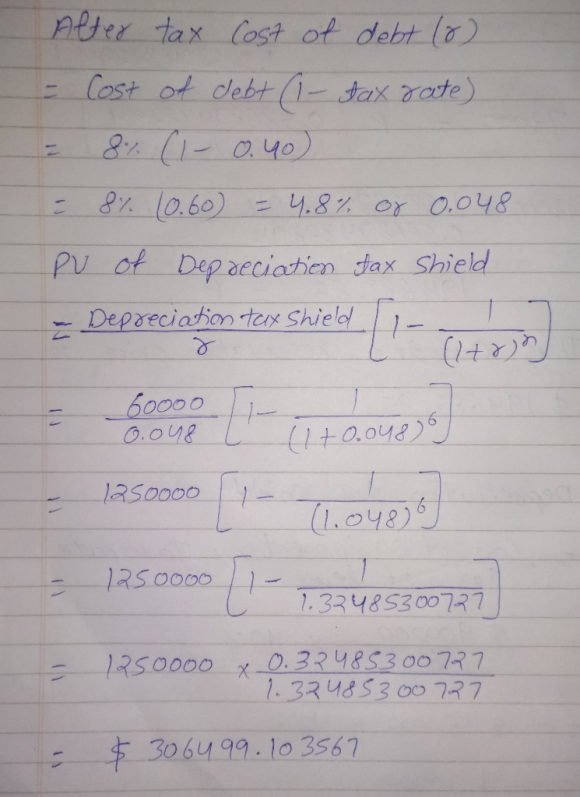 After tax Cost of debt (r)
= Cost of debt (1- tax rate)
= 8% (1- 0.40)
= 8% (0.60) = 4.8% or 0.048
PV of Depreciation tax Shield
= Depreciation tax Shield / r [1- 1 / (1+r)^n]
= 60000 / 0.048 [1- 1 / (1+0.048)^6]
= 1250000 [1- 1 / (1.048)^6]
= 1250000 [1- 1 / 1.32485300727]
= 1250000 x 0.32485300727 / 1.32485300727
= $ 306499.103567